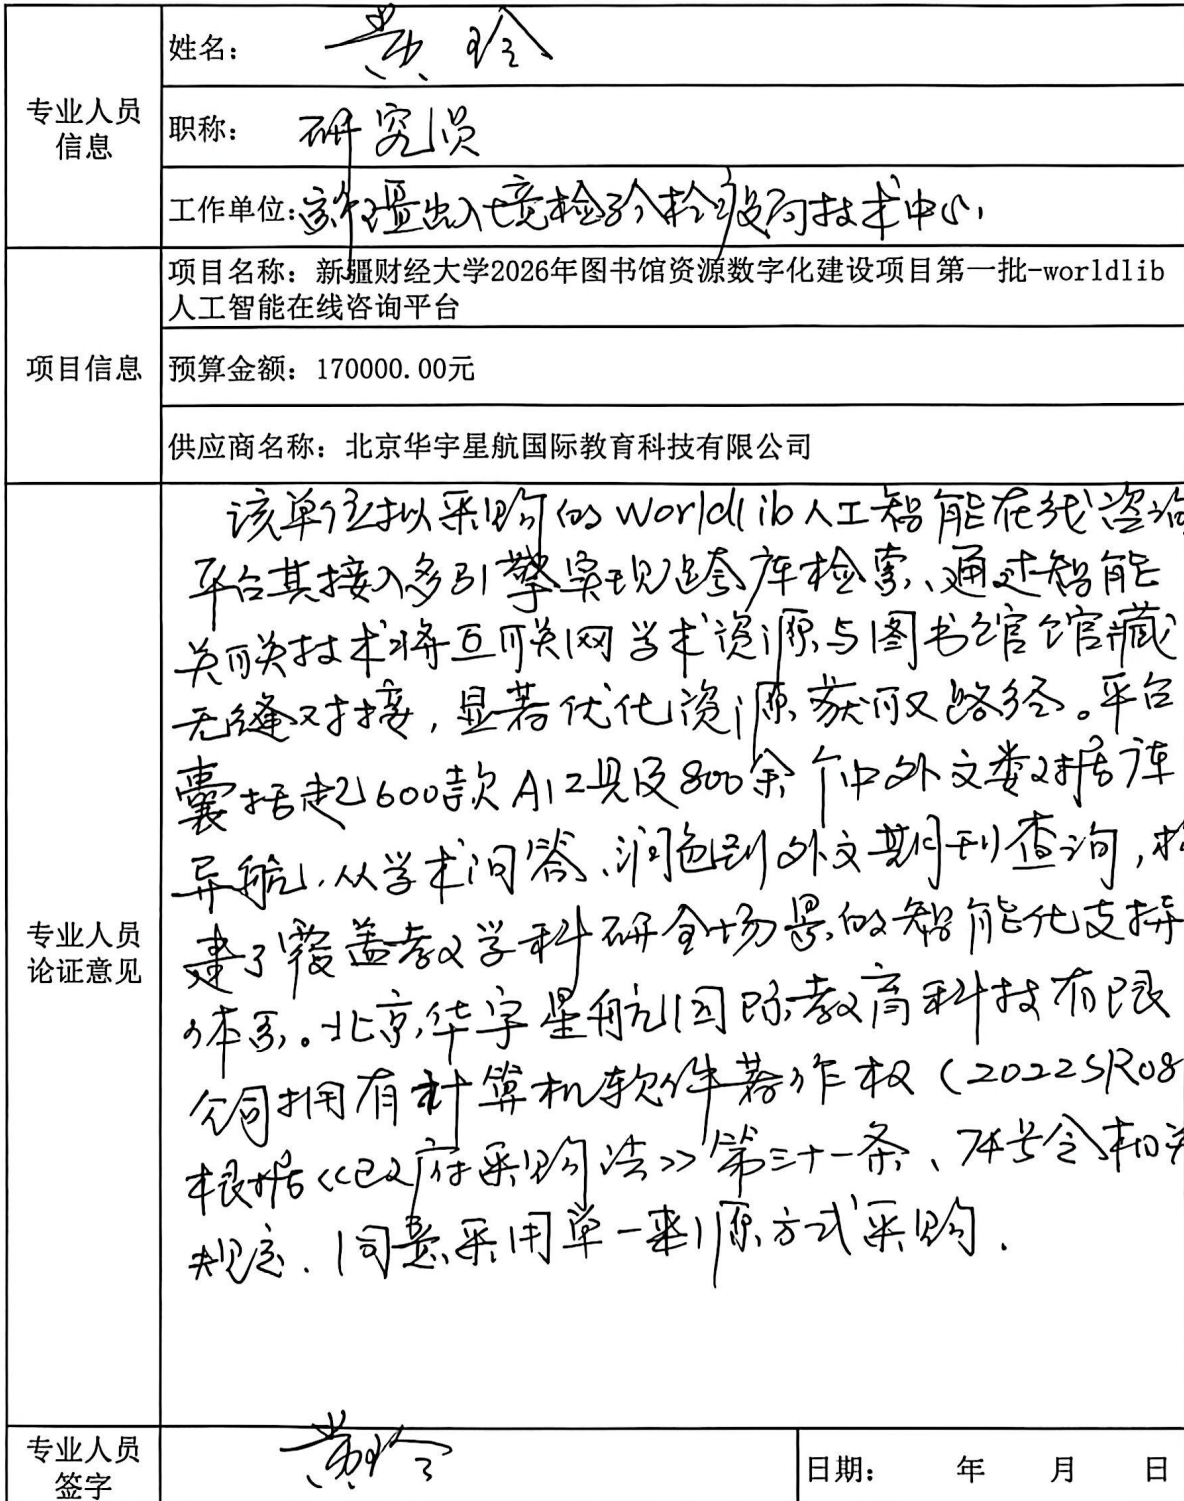 专业人员
信息
姓名： 黄玲
职称： 研究员
工作单位：新疆出入境检验检疫局技术中心，
项目信息
项目名称：新疆财经大学2026年图书馆资源数字化建设项目第一批-worldlib
人工智能在线咨询平台
预算金额：170000.00元
供应商名称：北京华宇星航国际教育科技有限公司
专业人员
论证意见
该单位拟采购的worldlib人工智能在线咨询
平台其接入多引擎实现跨库检索、通过智能
关联技术将互联网学术资源与图书馆馆藏
无缝对接，显著优化资源获取路径。平台
囊括超600款AI工具及800余个中外文类数据库
导航，从学术问答、润色到外文期刊查询，构
建了覆盖教学科研全场景的智能化支撑
体系。北京华宇星航国际教育科技有限
公司拥有计算机软件著作权（2022SR08
根据《政府采购法》第三十一条、74号令相关
规定．同意采用单一来源方式采购．
专业人员
签字
黄玲
日期： 年 月 日